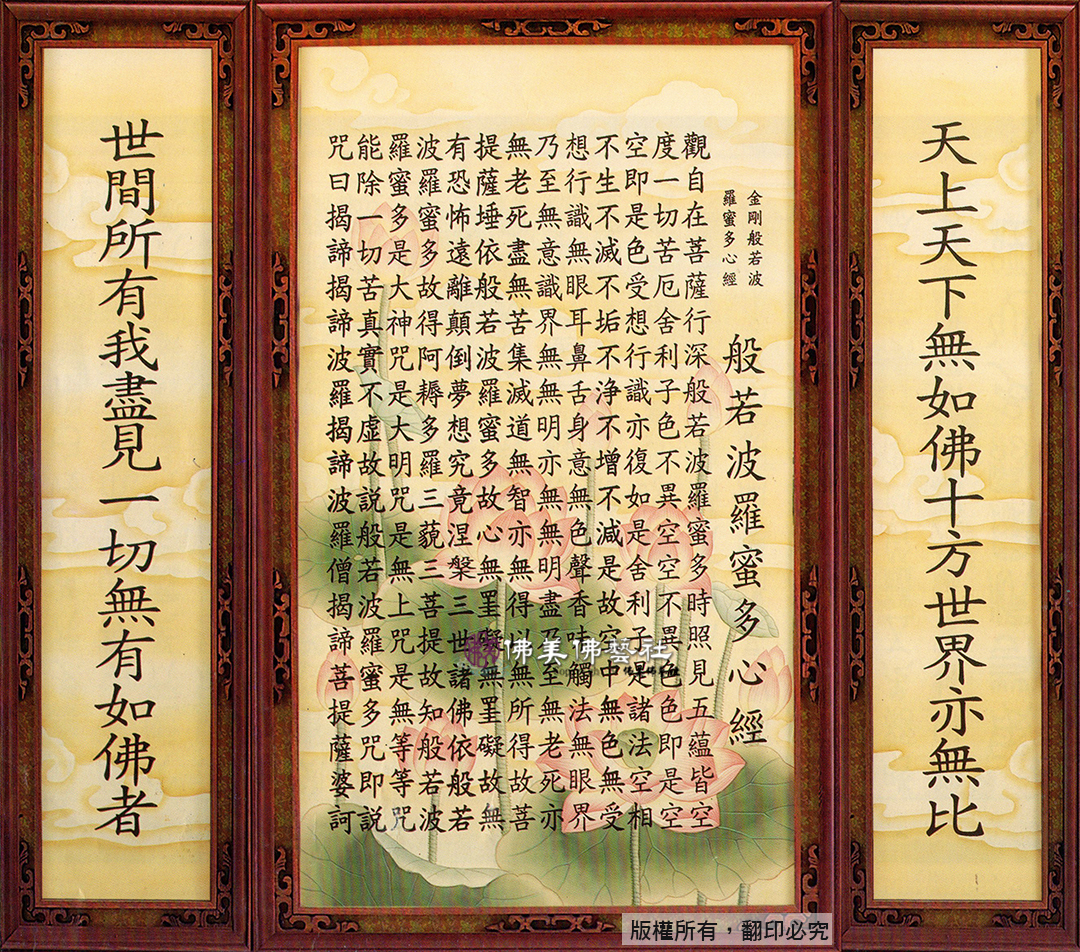 天上天下無如佛十方世界亦無比
金剛般若波
羅蜜多心經
般若波羅蜜多心經
觀自在菩薩行深般若波羅蜜多時照見五蘊皆空
度一切苦厄舍利子色不異空空不異色色即是空
空即是色受想行識亦復如是舍利子是諸法空相
不生不滅不垢不淨不增不減是故空中無色無受
想行識無眼耳鼻舌身意無色聲香味觸法無眼界
乃至無意識界無無明亦無無明盡乃至無老死亦
無老死盡無苦集滅道無智亦無得以無所得故菩
提薩埵依般若波羅蜜多故心無罣礙無罣礙故無
有恐怖遠離顛倒夢想究竟涅槃三世諸佛依般若
波羅蜜多故得阿耨多羅三藐三菩提故知般若波
羅蜜多是大神咒是大明咒是無上咒是無等等咒
能除一切苦真實不虛故說般若波羅蜜多咒即說
咒曰揭諦揭諦波羅揭諦波羅僧揭諦菩提薩婆訶
世間所有我盡見一切無有如佛者
佛美佛藝社
版權所有，翻印必究